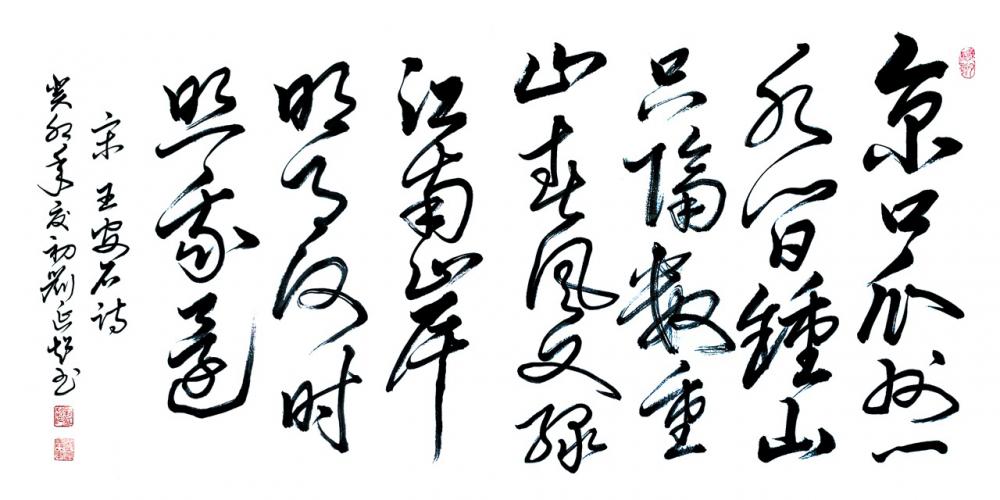 京口瓜洲一
水间鍾山
只隔数重
山春风又绿
江南岸
明月何时
照我还
宋 王安石诗
癸卯年夏初刘延超书